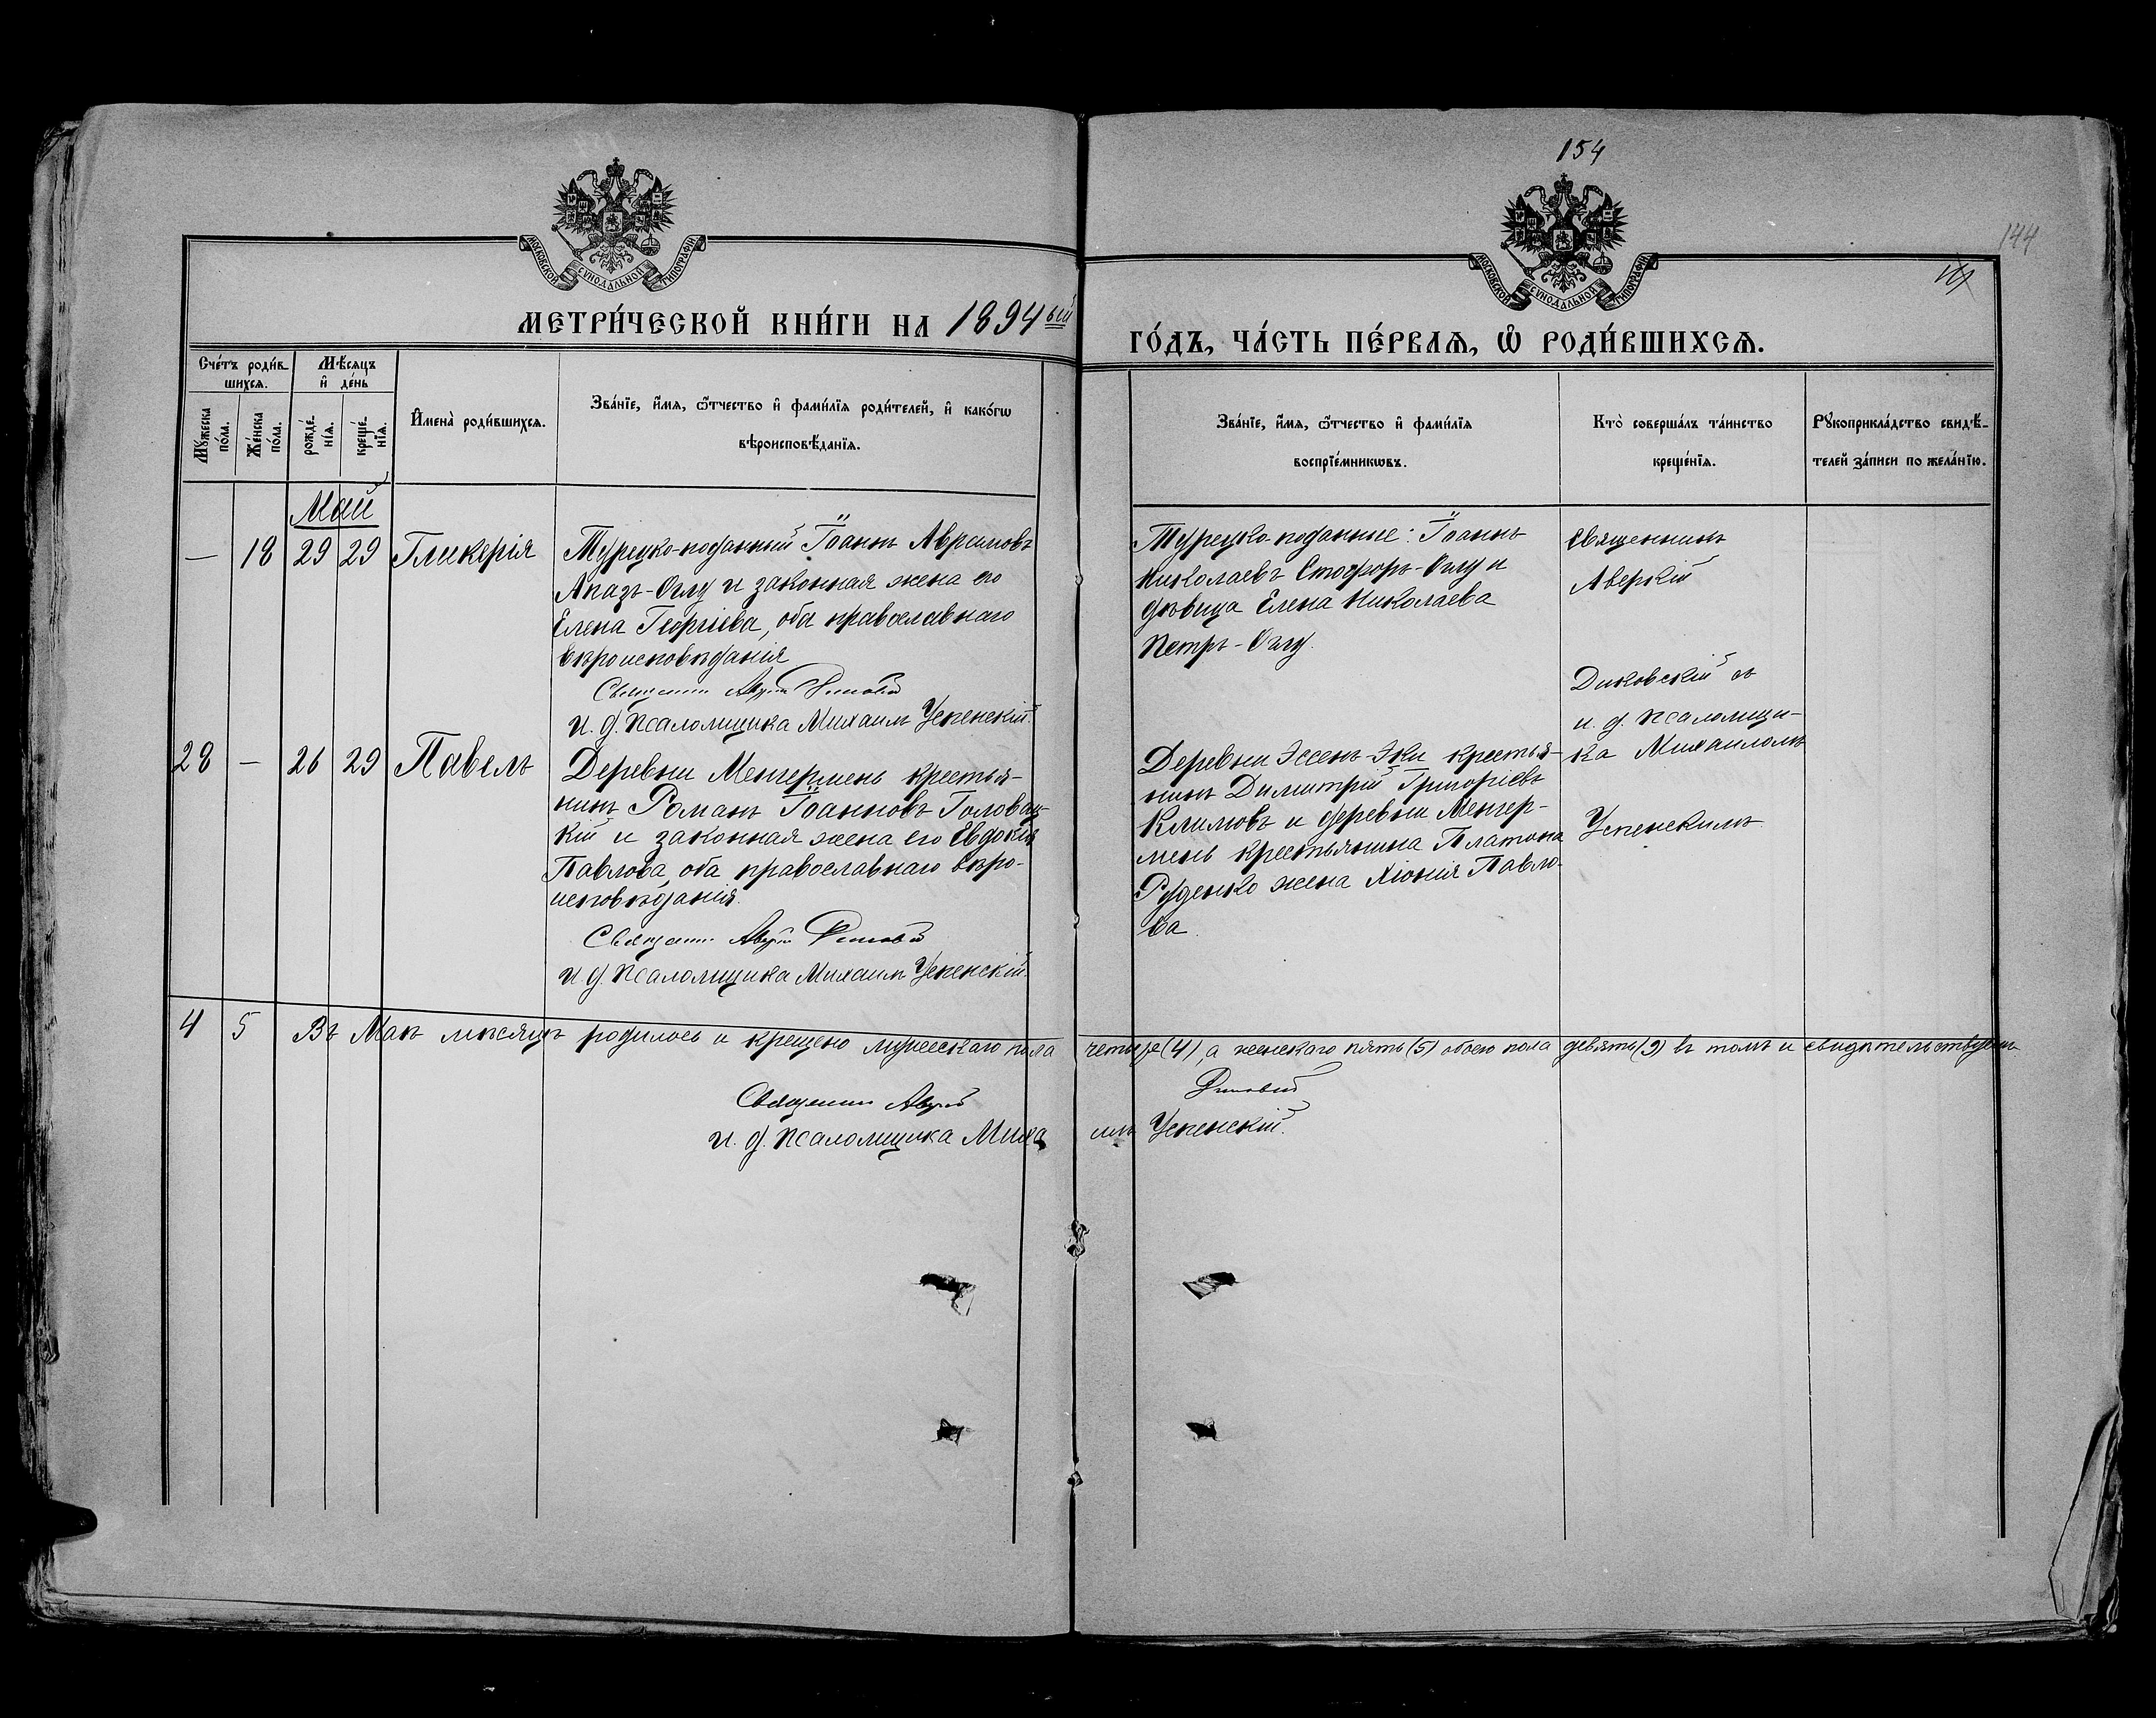 154
144
МОСКОВСКОЙ СѴНОДАЛЬНОЙ ТИПОГРАФІИ
МОСКОВСКОЙ СѴНОДАЛЬНОЙ ТИПОГРАФІИ
МЕТРИ́ЧЕСКОЙ КНИ́ГИ НА 1894ый
ГО́ДЪ, ЧА́СТЬ ПЕ́РВАѦ, Ѡ҆ РОДИ́ВШИХСѦ.
Сче́тъ роди́в-
шихсѧ.
Мѣ́сѧцъ
и҆ де́нь
Мꙋжеска
по́ла.
Же́нска
по́ла.
рожде́-
нїѧ.
креще́-
нїѧ.
И҆мена̀ роди́вшихсѧ.
Зва́нїе, и҆́мѧ, ѻ҆́тчество и҆ фами́лїѧ роди́телей, и҆ како́гѡ
вѣроисповѣ́данїѧ.
Зва́нїе, и҆́мѧ, ѻ҆́тчество и҆ фами́лїѧ
воспрїе́мникѡвъ.
Кто̀ соверша́лъ та́инство
креще́нїѧ.
Рꙋкоприкла́дство свидѣ́-
телей за́писи по жела́нїю.
Май
— 18 29 29 Гликерія
Турецко-поданный Іоаннъ Аврамовъ
Апазъ-Оглу и законная жена его
Елена Георгіева, оба православнаго
вѣроисповѣданія
Священник
и. д. псаломщика Михаилъ Успенскій.
Турецко-поданные: Іоаннъ
Николаевъ Стофоръ-Оглу и
дѣвица Елена Николаева
Петръ-Оглу.
Священникъ
Аверкій
Диковскій съ
и. д. псаломщи-
ка Михаиломъ
Успенскимъ.
28 — 26 29 Павелъ
Деревни Менгермень крестья-
нинъ Романъ Іоанновъ Головац-
кій и законная жена его Евдокія
Павлова, оба православнаго вѣро-
исповѣданія.
Священник
и. д. псаломщика Михаилъ Успенскій.
Деревни Эссенъ-Эки крестья-
нинъ Димитрій Григоріевъ
Климовъ и деревни Менгер-
мень крестьянина Платона
Руденко жена Хіонія Павло-
ва.
4 5 Въ Маѣ мѣсяцѣ родилось и крещено мужескаго пола четыре (4), а женскаго пять (5) обоего пола девять (9) въ томъ и свидѣтельствуемъ
Священник
и. д. псаломщика Михаилъ Успенскій.